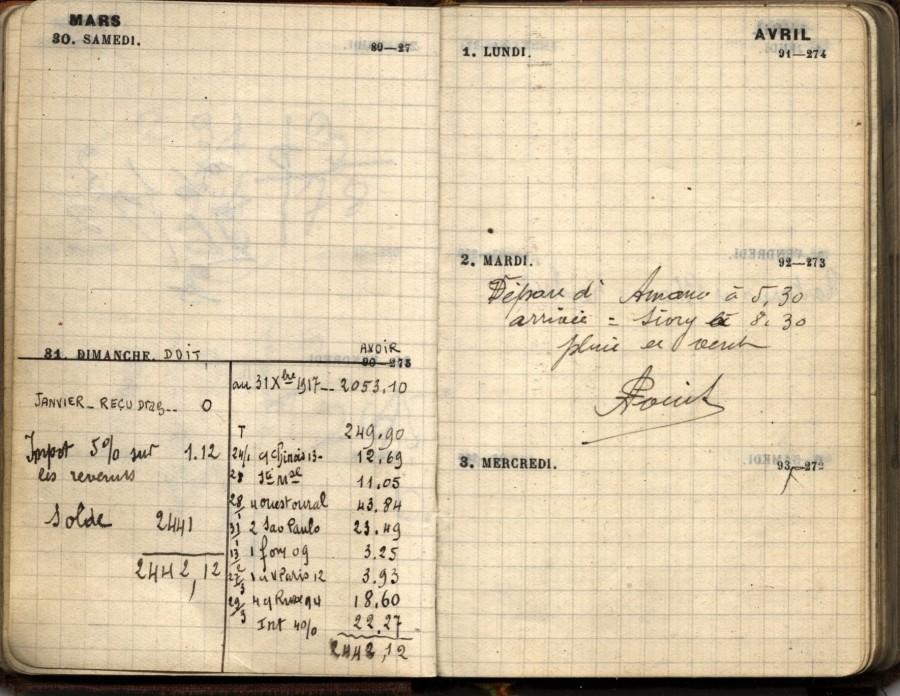 MARS
30. SAMEDI.
80—27
31. DIMANCHE. DOIT
AVOIR
90—275
JANVIER - REÇU
0
Impot 5% sur
1.12
les revenus
Solde 2441
2442,12
au 31 Xbre 1917 -- 2053.10
T 249.90
24/1 Chinois 13 - 12.69
28 11.05
28 4 ouest oural 43.84
31/1 2 Sao Paulo 23.49
13/2 1 09 3.25
27/2 1 Paris 12 3.93
29/3 4 94 18.60
Int 4% 22.27
2442,12
AVRIL
1. LUNDI.
91—274
2. MARDI.
92—273
Départ d' à 5.30
arrivée = 8.30
pluie et vent
3. MERCREDI.
93—272